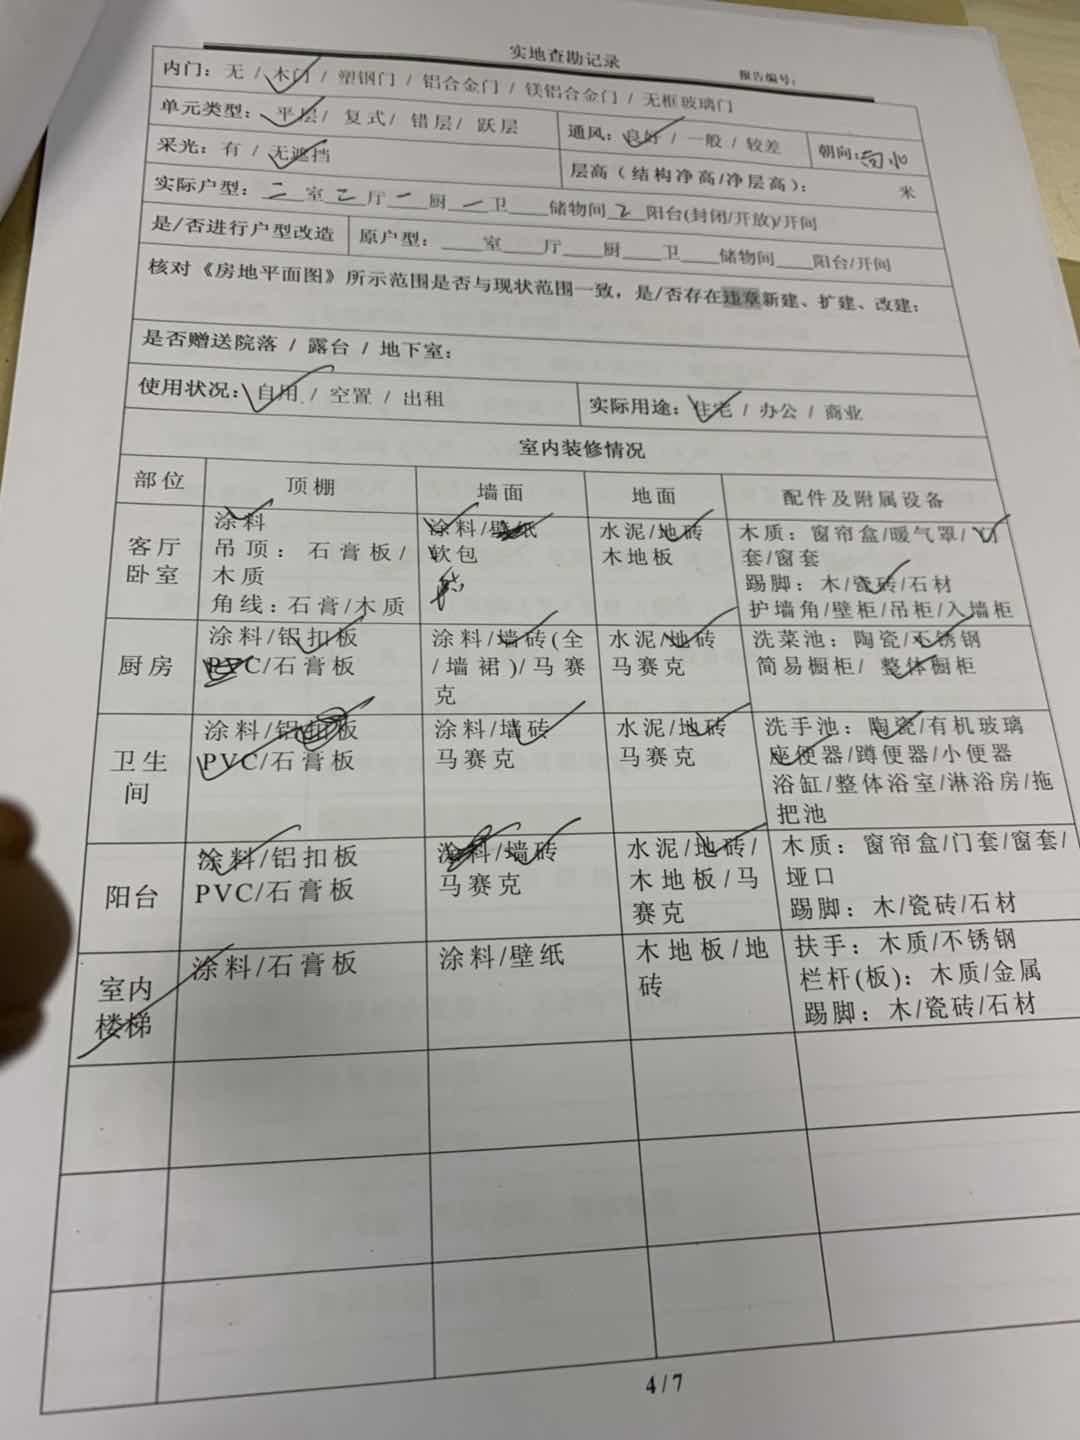 实地查勘记录
报告编号：
内门：无 / 木门 / 塑钢门 / 铝合金门 / 镁铝合金门 / 无框玻璃门
单元类型：平层/ 复式/ 错层/ 跃层 通风：良好 / 一般 / 较差 朝向：南北
采光：有 / 无遮挡 层高（结构净高/净层高）： 米
实际户型：二室二厅一厨一卫____储物间2阳台(封闭/开放)/开间
是/否进行户型改造 原户型：____室____厅____厨____卫____储物间____阳台/开间
核对《房地平面图》所示范围是否与现状范围一致，是/否存在违章新建、扩建、改建：
是否赠送院落 / 露台 / 地下室：
使用状况：自用 / 空置 / 出租 实际用途：住宅 / 办公 / 商业
室内装修情况
部位 顶棚 墙面 地面 配件及附属设备
客厅
卧室
涂料
吊顶：石膏板/
木质
角线：石膏/木质
涂料/壁纸
软包
水泥/地砖
木地板
木质：窗帘盒/暖气罩/门
套/窗套
踢脚：木/瓷砖/石材
护墙角/壁柜/吊柜/入墙柜
厨房
涂料/铝扣板
PVC/石膏板
涂料/墙砖(全
/墙裙)/马赛
克
水泥/地砖
马赛克
洗菜池：陶瓷/不锈钢
简易橱柜/ 整体橱柜
卫生
间
涂料/铝扣板
PVC/石膏板
涂料/墙砖
马赛克
水泥/地砖
马赛克
洗手池：陶瓷/有机玻璃
座便器/蹲便器/小便器
浴缸/整体浴室/淋浴房/拖
把池
阳台
涂料/铝扣板
PVC/石膏板
涂料/墙砖
马赛克
水泥/地砖/
木地板/马
赛克
木质：窗帘盒/门套/窗套/
垭口
踢脚：木/瓷砖/石材
室内
楼梯
涂料/石膏板
涂料/壁纸
木地板/地
砖
扶手：木质/不锈钢
栏杆(板)：木质/金属
踢脚：木/瓷砖/石材
4/7